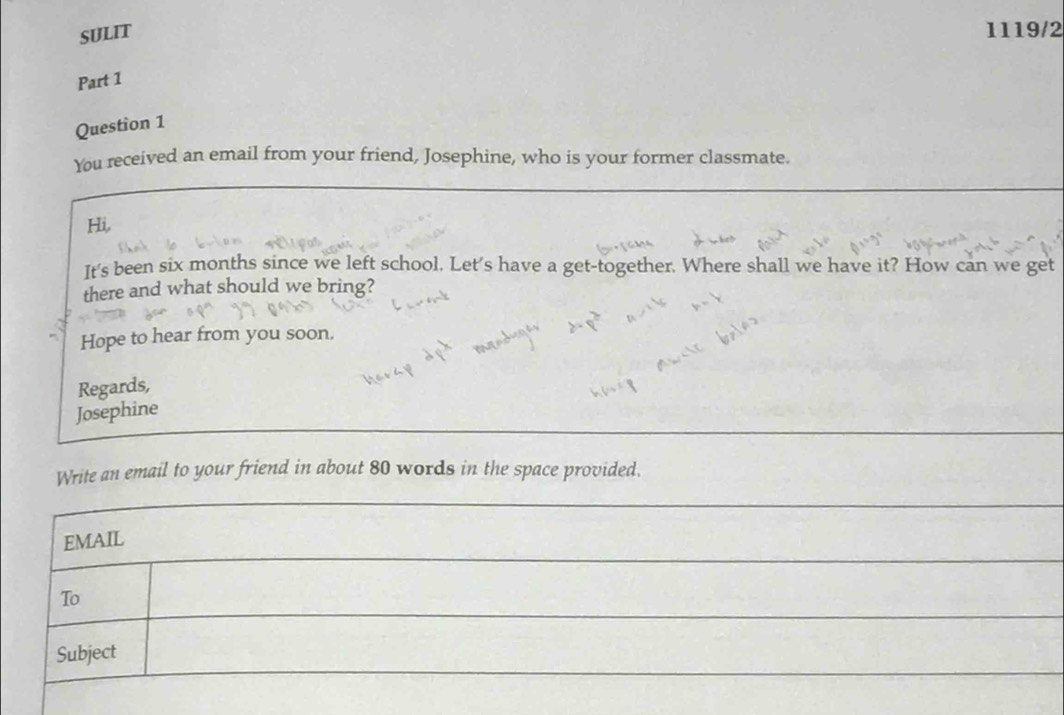 SULIT
1119/2
Part 1
Question 1
You received an email from your friend, Josephine, who is your former classmate.
Hi,
6 bulan
It's been six months since we left school. Let's have a get-together. Where shall we have it? How can we get
there and what should we bring?
dan apa yg
Hope to hear from you soon.
harap dpt
Regards,
Josephine
Write an email to your friend in about 80 words in the space provided.
EMAIL
To
Subject